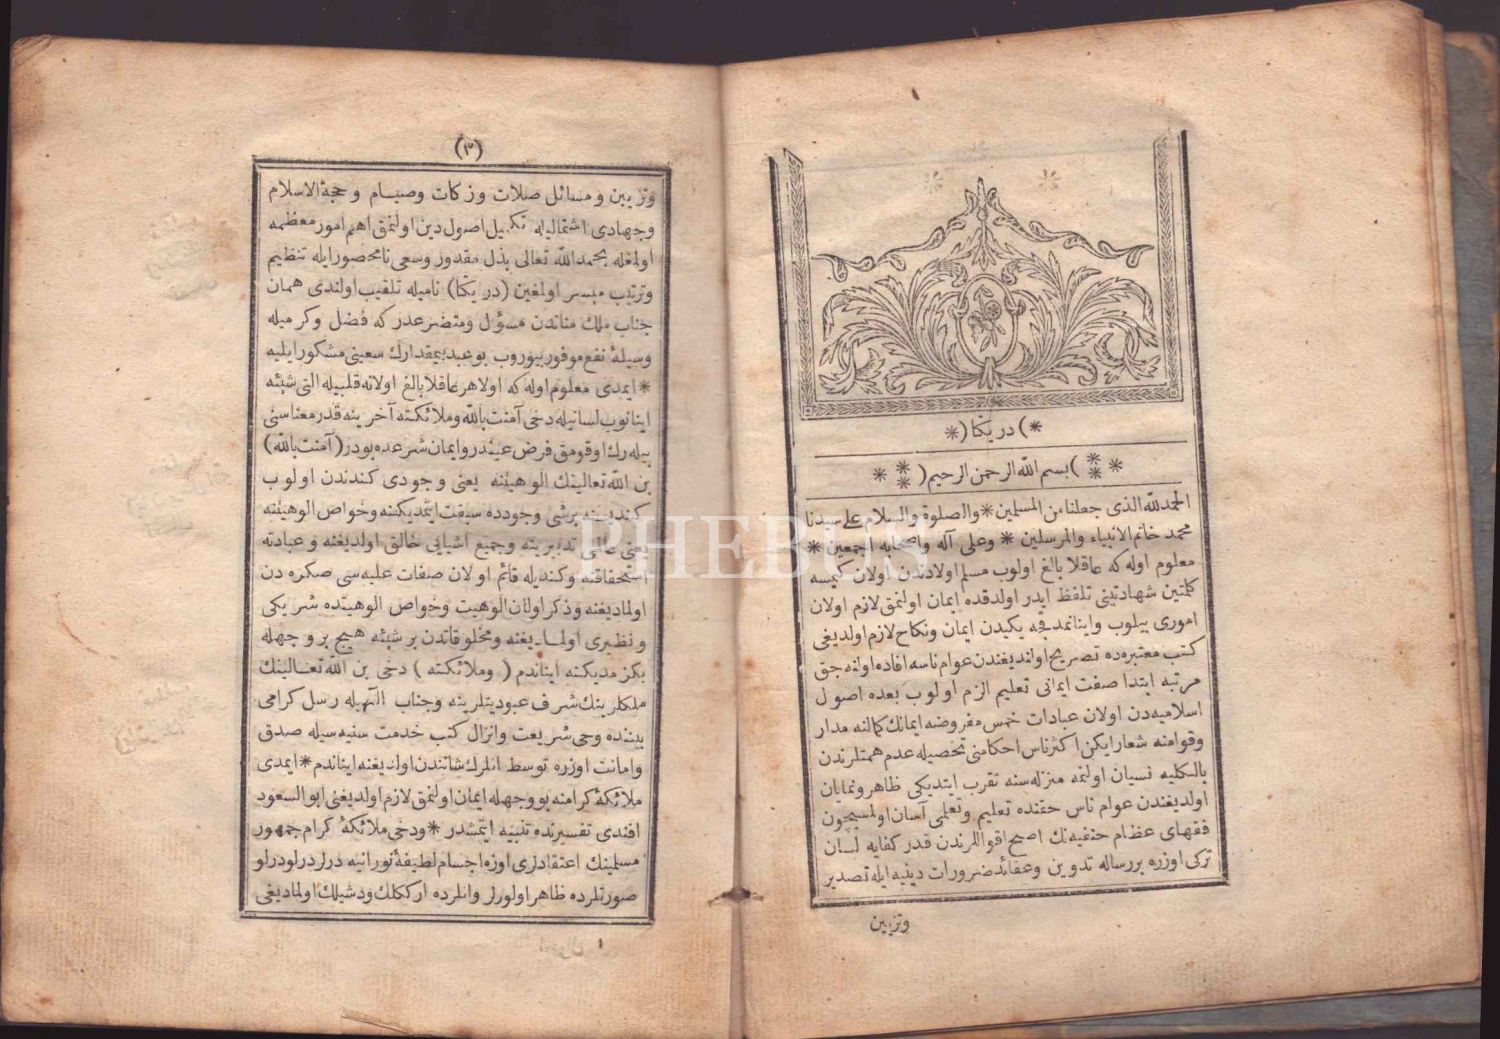 *) در یکتا (*
** *) بسم الله الرحمن الرحيم (** *
الحمد لله الذى جعلنا من المسلمين * والصلوة والسلام على سيدنا
محمد خاتم الانبياء والمرسلين * وعلى آله واصحابه اجمعين *
معلوم اوله كه عاقلا بالغ اولوب مسلم اولادندن اولان كيمسه
كلمتين شهادتينى تلفظ ايدر اولدقده ايمان اولنمق لازم اولان
امورى بيلوب واينانمدقجه يكيدن ايمان ونكاح لازم اولديغى
كتب معتبره ده تصريح اولنديغندن عوام ناسه افاده اولنه جق
مرتبه ابتدا صفت ايمانى تعليم الزم اولوب بعده اصول
اسلاميه دن اولان عبادات خمس مفروضه ايمانك كمالنه مدار
وقوامنه شعار ايكن اكثر ناس احكامنى تحصيله عدم همتلرندن
بالكليه نسيان اولنمه منزله سنه تقرب ايتديكى ظاهر ونمايان
اولديغندن عوام ناس حقنده تعليم وتعلمى آسان اولمسيچون
فقهاى عظام حنفيه نك اصح اقواللرندن قدر كفايه لسان
تركى اوزره بر رساله تدوين وعقائد ضرورات دينيه ايله تصدير
وتزيين
(٣)
وتزيين ومسائل صلات وزكات وصيام وحجة الاسلام
وجهادى اشتماليله تكميل اصول دين اولنمق اهم امور معظمه
اولمغله بحمد الله تعالى بذل مقدور وسعى نامحصور ايله تنظيم
وترتيب ميسر اولمغين (در يكتا) ناميله تلقيب اولندى همان
جناب ملك مناندن مسؤل ومتضرعدر كه فضل وكرميله
وسيلۀ نفع موفور بيوروب بو عبد بيمقدارك سعينى مشكور ايليه
* ايمدى معلوم اوله كه اولا هر عاقلا بالغ اولانه قلبيله التى شيئه
اينانوب لسانيله دخى آمنت بالله وملائكته آخرينه قدر معناسنى
بيله رك اوقومق فرض عيندر وايمان شرعده بودر (آمنت بالله)
بن الله تعالينك الوهيتنه يعنى وجودى كندندن اولوب
كندينه برشى وجودده سبقت ايتمديكنه وخواص الوهيتنه
يعنى تدبيرينه وجميع اشيايى خالق اولديغنه وعبادته
استحقاقنه وكنديله قائم اولان صفات عليه سى صكره دن
اولماديغنه وذكر اولنان الوهيت وخواص الوهيتده شريكى
ونظيرى اولماديغنه ومخلوقاتدن بر شيئه هيچ بر وجهله
بكزمديكنه اينانم (وملائكته) دخى بن الله تعالينك
ملكلرينك شرف عبوديتلرينه وجناب الهيله رسل كرامى
بيننده وحى شريعت وانزال كتب خدمت سنيه سيله صدق
وامانت اوزره توسط انلرك شانندن اولديغنه اينانم * ايمدى
ملائكۀ كرامنه بو وجهله ايمان اولنمق لازم اولديغنى ابو السعود
افندى تفسيرنده تنبيه ايتمشدر * ودخى ملائكۀ كرام جمهور
مسلمينك اعتقادلرى اوزره اجسام لطيفۀ نورانيه درلر درلو درلو
صورتلرده ظاهر اولورلر وانلرده اركلك ودشيلك اولماديغى
PHEBUS